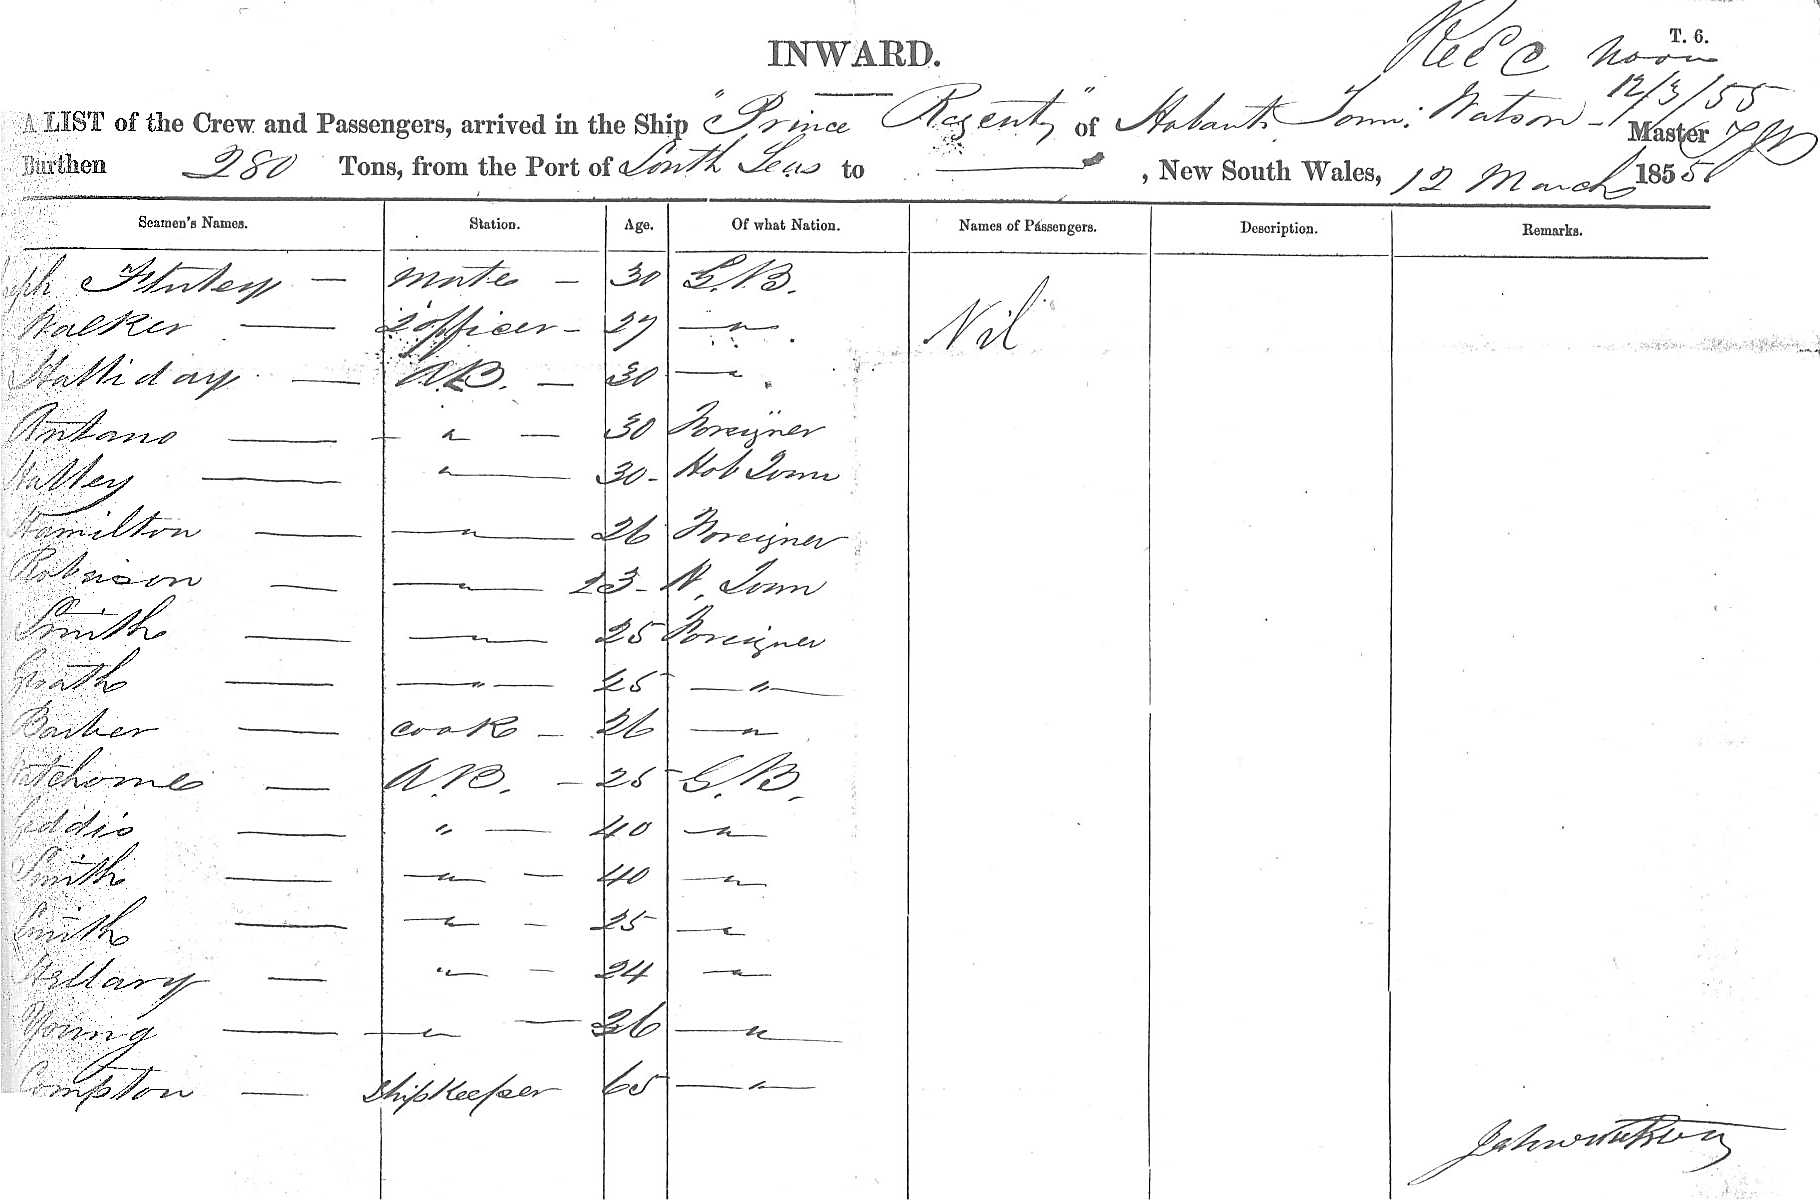 INWARD.
T. 6.
Recd noon
12/3/55
A LIST of the Crew and Passengers, arrived in the Ship "Prince Regent" of Hobart Town: Watson - Master
Burthen 280 Tons, from the Port of South Seas to — , New South Wales, 12 March 1855
Seamen's Names. Station. Age. Of what Nation. Names of Passengers. Description. Remarks.
mate — 30 G.B.
Walker — 2 officer — 27 — " Nil
Halliday — A.B. — 30 — "
Antano — " — 30 Foreigner
— " — 30 - Hob Town
Hamilton — " — 26 Foreigner
Robinson — " — 23 - H. Town
Smith — " — 25 Foreigner
— " — 25 — " —
Barber — cook — 26 — "
A.B. — 25 G.B.
Geddis — " — 40 — " —
Smith — " — 40 — " —
Smith — " — 25 — "
Hellary — " — 24 — " —
Young — " — 26 — " —
Compton — shipkeeper 65 — " —